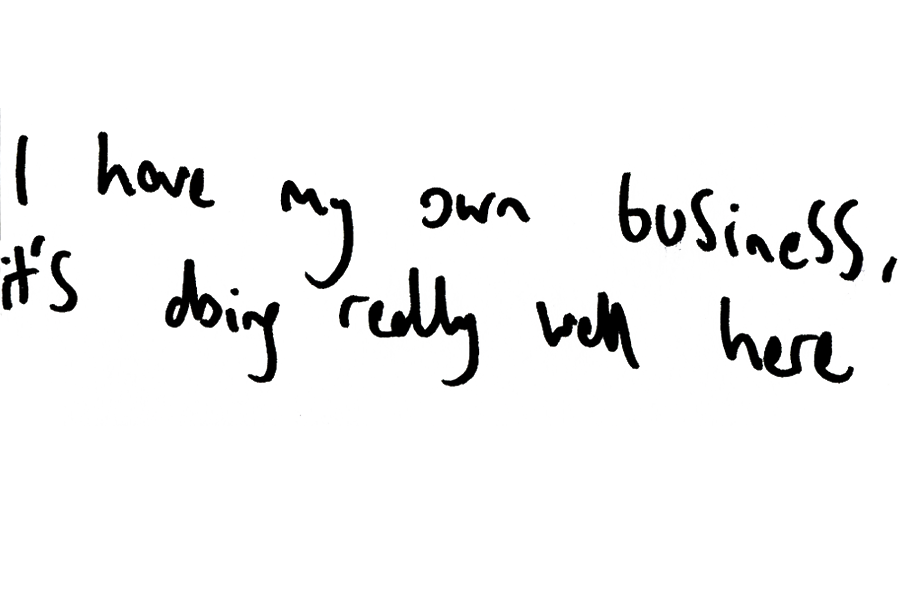 I have my own business,
it's doing really well here